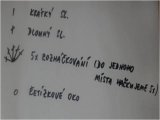 1 KRÁTKÝ SL.
† DLOUHÝ SL.
5X ROZHÁČKOVÁNÍ (DO JEDNOHO
MÍSTA HÁČKUJEME 5X)
0 ŘETÍZKOVÉ OKO